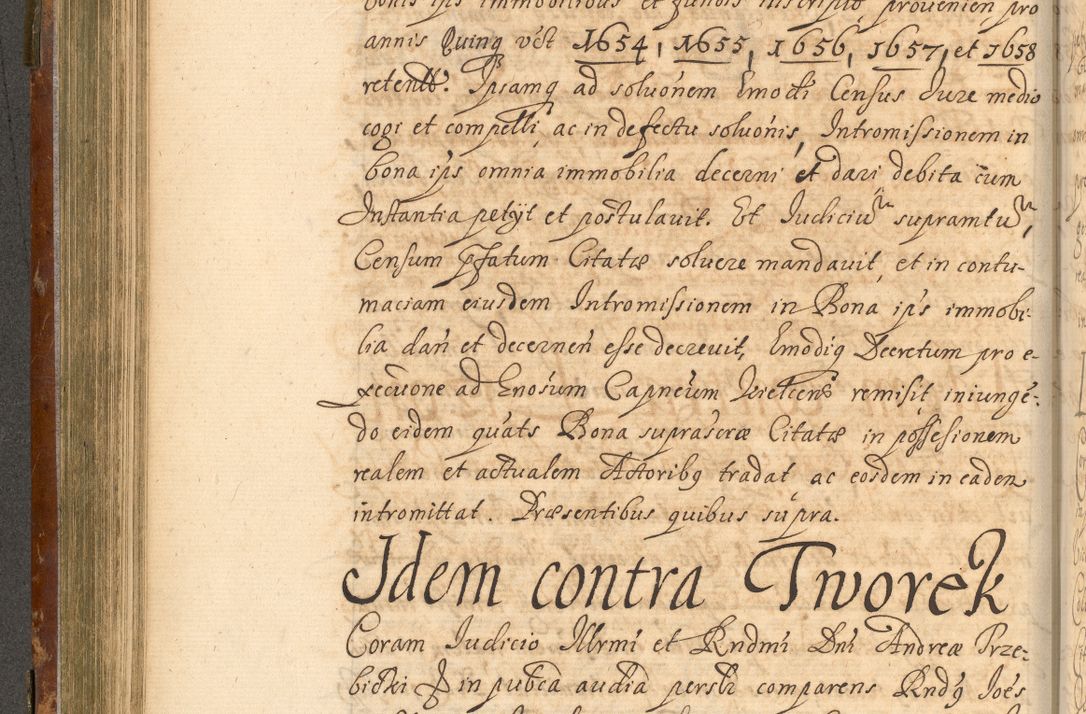 bonis ips immobilibus et fundis inscripto provenien pro
annis Quinq vѣt 1654, 1655, 1656, 1657, et 1658
retentt. Ipsamq ad soluónem Emodi Census Iure medio
cogi et compelli, ac in defectu soluónis, Intromissionem in
bona ips omnia immobilia decerni et dari debita cum
Instantia petÿt et postulauit. Et Iudiciu supramtu,
Censum pfatum Citatæ soluere mandauit, et in contu-
maciam eiusdem Intromissionem in Bona ips immobi-
lia dan et decernen esse decreuit, Emodiq Decretum pro e-
xecuone ad Enosum Capneum remisit iniunge-
do eidem quats Bona suprascræ Citatæ in possesionem
realem et actualem Actoribq tradat ac eosdem in eadem
intromittat. Præsentibus quibus supra.
Idem contra Tworek
Coram Iudicio Illrmi et Rndmi Dni Andreæ Trze-
bicki in pubca audia perslr comparens Rndq Joes